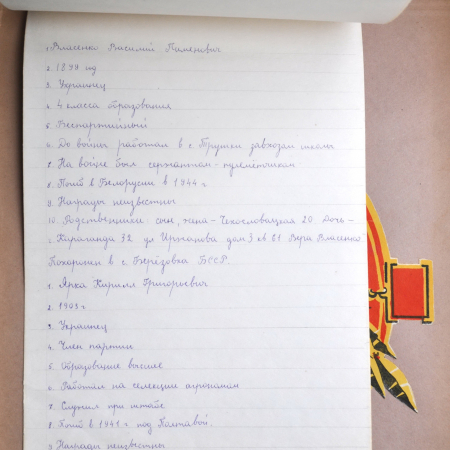 1. Власенко Василий Пименович
2. 1899 год
3. Украинец
4. 4 класса образования
5. Беспартийный
6. До войны работал в с. Трушки завхозам школы
7. На войне был сержантом-пулемётчикам
8. Погиб в Белоруссии в 1944 г.
9. Награды неизвестны
10. Родственники: сын, жена - Чехословацкая 20. Дочь -
г. Караганда 32 ул дом 3 кв 81 Вера Власенко.
Похоронен в с. Берёзовка БССР.
1. Ярка Кирилл Григорьевич
2. 1903 г.
3. Украинец
4. Член партии
5. Образование высшее
6. Работал на селекции агрономам
7. Служил при штабе
8. Погиб в 1941 г. под Полтавой.
9. Награды неизвестны